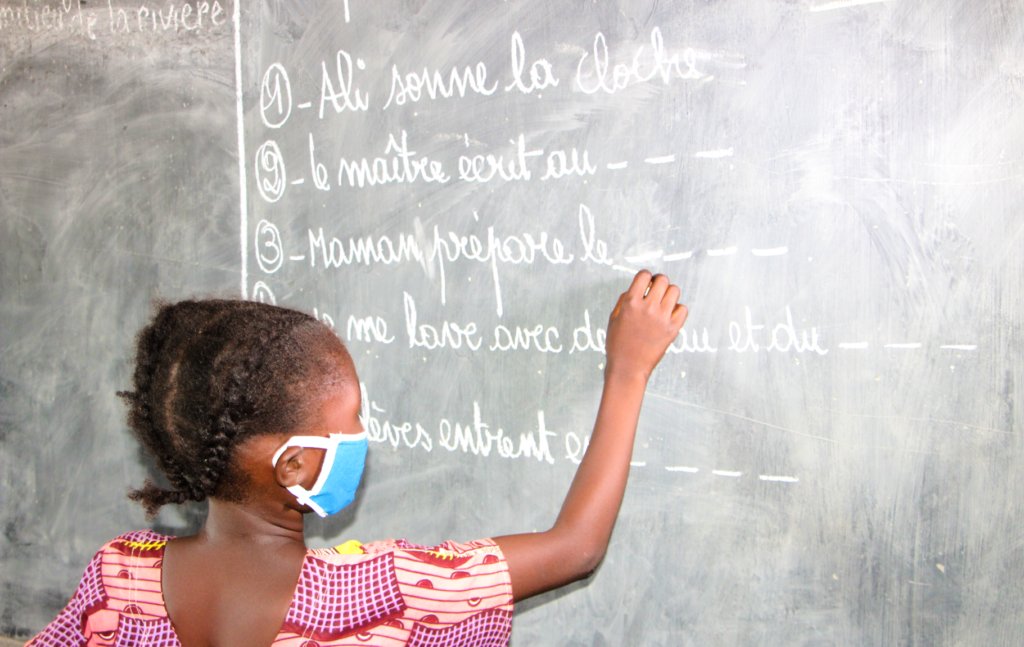 milieu de la rivière
① - Ali sonne la cloche
② - le maître écrit au _ _ _
③ - Maman prépare le _ _ _ _
me lave avec de au et du _ _ _
lèves entrent e _ _ _ _